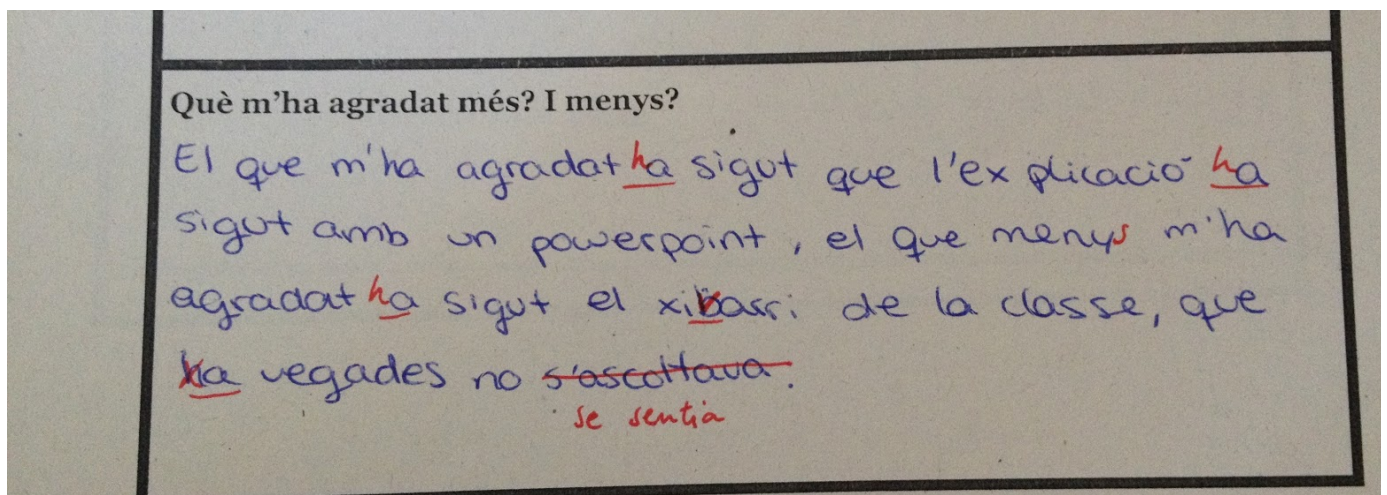 Què m'ha agradat més? I menys?
El que m'ha agradat ha sigut que l'explicació ha
sigut amb un powerpoint, el que menys m'ha
agradat ha sigut el xivarri de la classe, que
a vegades no s'ascoltava.
se sentia